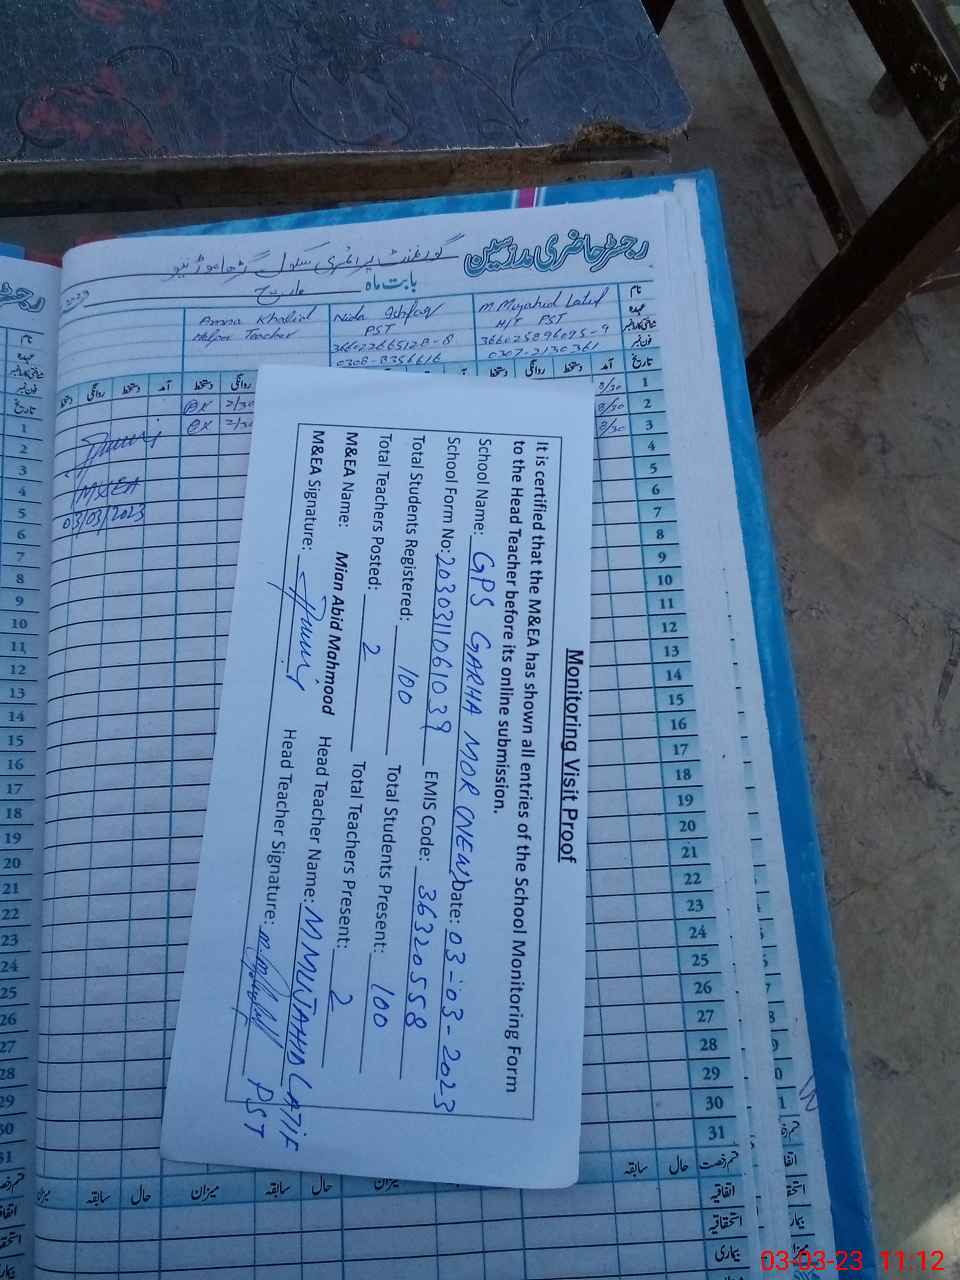 رجسٹر حاضری مدرسین
گورنمنٹ پرائمری سکول گڑھا موڑ نیو
بابت ماہ مارچ 2023
نام
عہدہ
شناختی کارڈ نمبر
فون نمبر
M. Mujahid Latif
H/T PST
366025896095-9
0307-2130361
Nida Ishfaq
PST
366022665128-8
0308-8356616
Amna Khalid
Helper Teacher
تاریخ آمد دستخط روانگی دستخط
1 8/30
2 8/30
3 8/30
4
5
6
7
8
9
10
11
12
13
14
15
16
17
18
19
20
21
22
23
24
25
26
27
28
29
30
31
M&EA
03/03/2023
Monitoring Visit Proof
It is certified that the M&EA has shown all entries of the School Monitoring Form
to the Head Teacher before its online submission.
School Name: GPS GARHA MOR (NEW) Date: 03-03-2023
School Form No: 2030311061039 EMIS Code: 36320558
Total Students Registered: 100 Total Students Present: 100
Total Teachers Posted: 2 Total Teachers Present: 2
M&EA Name: Mian Abid Mahmood Head Teacher Name: M MUJAHID LATIF
M&EA Signature: Head Teacher Signature: PST
قسم رخصت حال سابقہ میزان حال سابقہ میزان حال سابقہ
اتفاقیہ
استحقاقیہ
بیماری
03-03-23 11:12